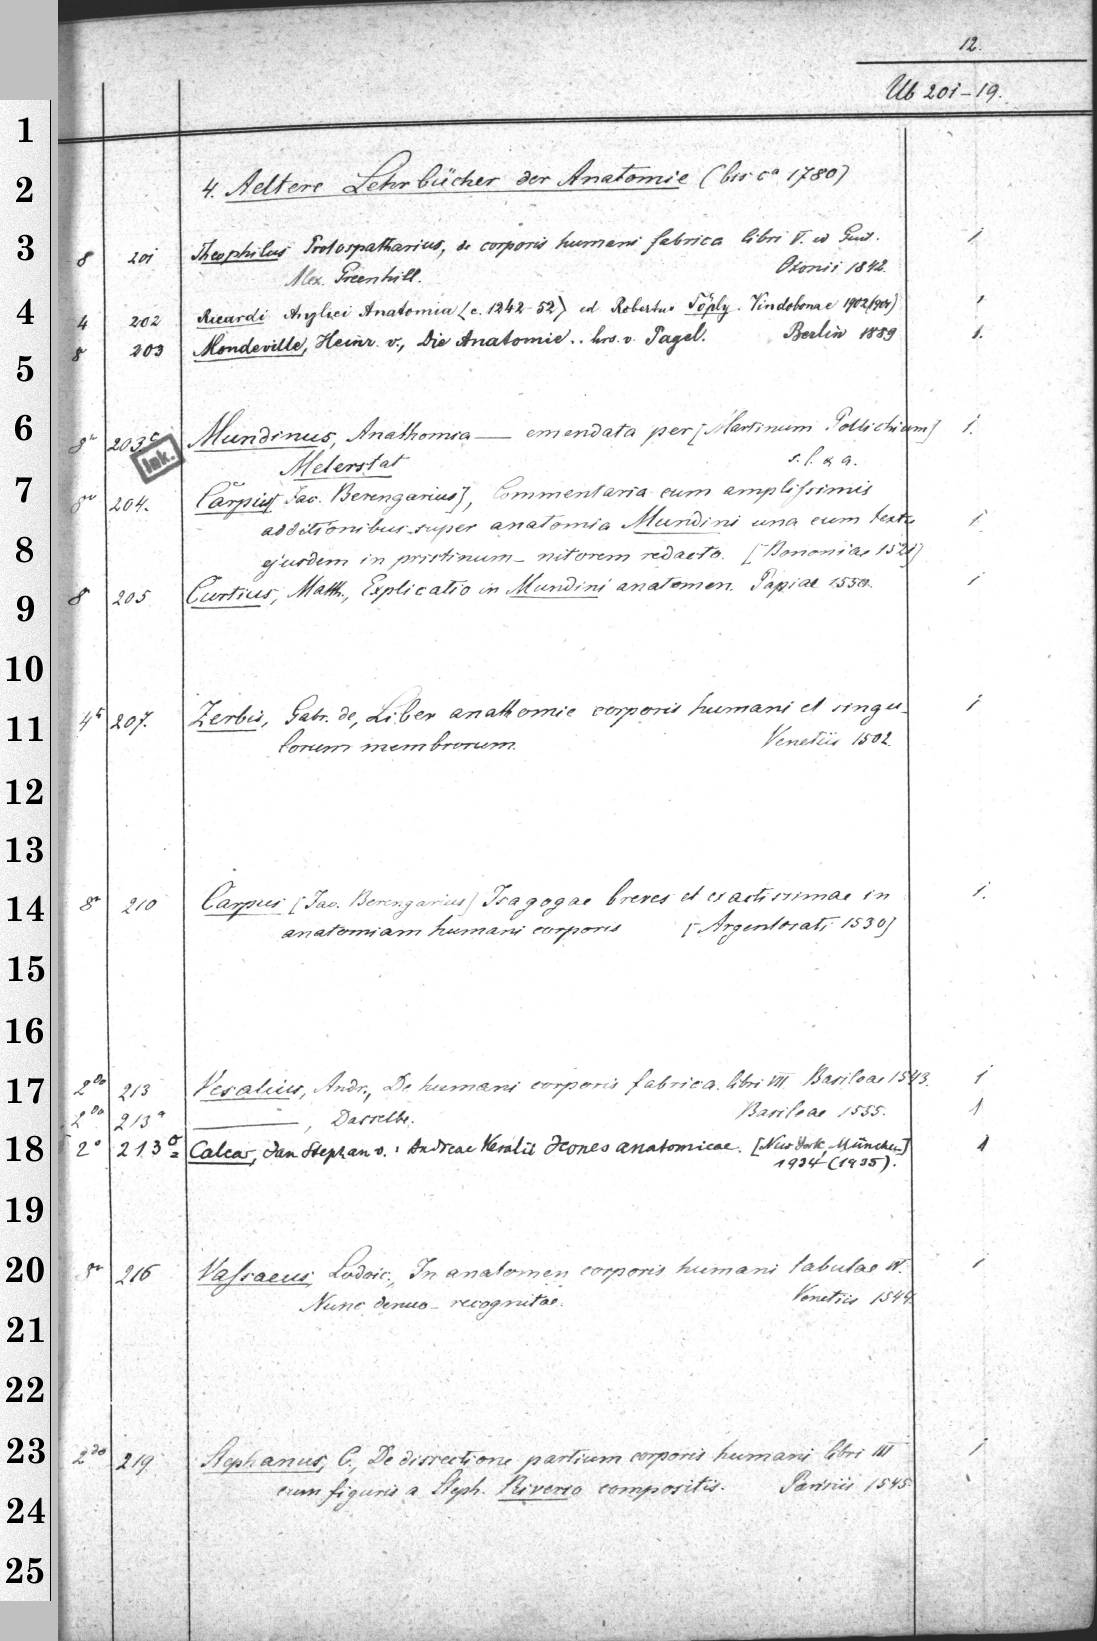 12.
Ub 201-19.
1
2
4. Aeltere Lehrbücher der Anatomie (bis ca 1780)
3
8 201 Theophilus Protospatharius, de corporis humani fabrica libri V. ed Guil. 1
Alex. Greenhill. Oxonii 1842.
4
4 202 Ricardi Anglici Anatomia (c. 1242-52) ed Robertus Töply. Vindobonae 1902 1
8 203 Mondeville, Heinr. v., Die Anatomie.. hrs. v. Pagel. Berlin 1889 1.
5
6
8° 203c Mundinus, Anathomia — emendata per [Martinum Pollichium] 1.
Ink.
Melerstat s. l. & a.
7
8° 204. Carpus [Jac. Berengarius], Commentaria cum amplissimis
additionibus super anatomia Mundini una cum textu 1
8
ejusdem in pristinum nitorem redacto. [Bononiae 1521]
9
8 205 Curtius, Matth., Explicatio in Mundini anatomen. Papiae 1550. 1
10
11
4° 207. Zerbis, Gabr. de, Liber anathomie corporis humani et singu- 1
lorum membrorum. Venetiis 1502.
12
13
14
8° 210 Carpus [Jac. Berengarius] Isagogae breves et exactissimae in 1.
anatomiam humani corporis [Argentorati 1530]
15
16
17
2do 213 Vesalius, Andr., De humani corporis fabrica. libri VII Basileae 1543. 1
2do 213a ———, Dasselbe. Basileae 1555. 1
18
2° 213b Calcar, Jan Stephan v.: Andreae Vesalii Icones anatomicae. [New York, München] 1
1934 (1935).
19
20
8° 216 Vassaeus, Lodoic., In anatomen corporis humani tabulae IV. 1
Nunc denuo recognitae. Venetiis 1544.
21
22
23
2do 219 Stephanus, C., De dissectione partium corporis humani libri III 1
cum figuris a Steph. Riverio compositis. Parisiis 1545.
24
25